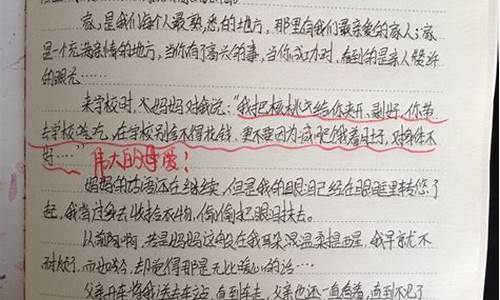 家，是我们每个人最熟悉的地方，那里有我们最亲爱的家人；家
是一个充满亲情的地方，当你有了高兴的事，当你成功时，看到的是亲人赞许
的眼光……
来学校时，妈妈对我说："我把核桃给你夹开，剥好，你带
去学校吃，在学校别舍不得花钱，更不要因为减肥饿着肚子，对身体不
好……"伟大的母爱！
妈妈的话语还在继续，但是我的眼泪已经在眼眶里转悠了
起，我背过身去收拾衣物，偷偷把眼泪抹去。
以前啊，若是妈妈这般在我耳朵温柔提醒，我早就不
耐烦了，而如今，却觉得那是无比暖心的话……
父亲开车将我送去车站，直到车走，父亲也还一直看着，直到不见了